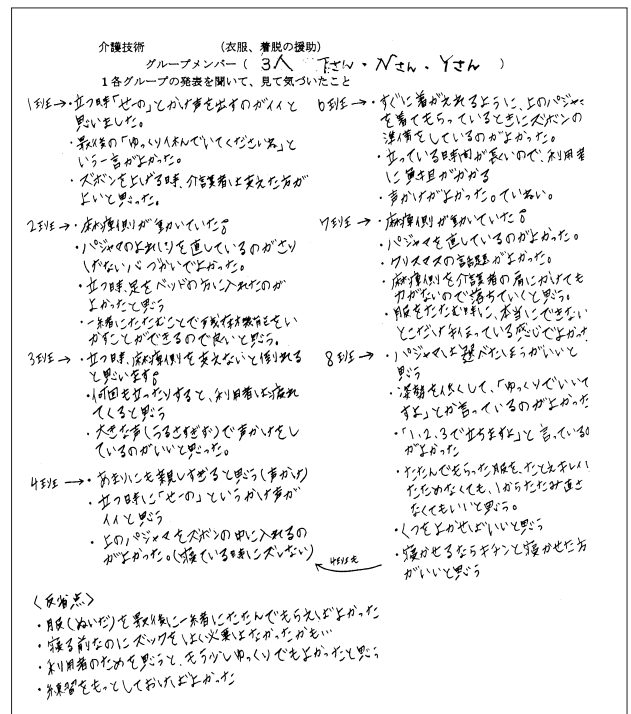 介護技術 (衣服、着脱の援助)
グループメンバー ( 3人 Tさん・Nさん・Yさん )
1各グループの発表を聞いて、見て気づいたこと
1班 → ・立つ時「せーの」とかけ声を出すのがイイと
思いました。
・最後の「ゆっくり休んでいてくださいね」と
いう一言がよかった。
・ズボンを上げる時、介護者は支えた方が
よいと思った。
2班 → ・麻痺側が動いていた。
・パジャマのよれ(しわ)を直しているのがさり
げない心づかいでよかった。
・立つ時、足をベッドの方に入れたのが
よかったと思う
・一緒にたたむことで残存機能をい
かすことができるので良いと思う。
3班 → ・立つ時、麻痺側を支えないと倒れる
と思います。
・何回も立ったりすると、利用者は疲れ
てくると思う
・大きな声(うるさすぎず)で声かけをし
ているのがいいと思った。
4班 → ・あまりにも親しすぎると思う(声かけ)
・立つ時に「せーの」というかけ声が
イイと思う
・上のパジャマをズボンの中に入れるの
がよかった。(寝ている時にズレない)
6班 → ・すぐに着がえれるように、上のパジャマ
を着てもらっているときにズボンの
準備をしているのがよかった。
・立っている時間が長いので、利用者
に負担がかかる
・声かけがよかった。ていねい。
7班 → ・麻痺側が動いていた。
・パジャマを直しているのがよかった。
・クリスマスの話題がよかった。
・麻痺側を介護者の肩にかけても
力がないので落ちていくと思う。
・服をたたむ時に、本当にできない
とこだけ手伝っている感じでよかった
8班 → ・パジャマは選べたほうがいいと
思う
・姿勢を低くして、「ゆっくりでいいで
すよ」とか言っているのがよかった
・「1、2、3で立ちますよ」と言っているの
がよかった
・たたんでもらった服を、たとえキレイに
たためなくても、1からたたみ直さ
なくてもいいと思う。
・くつをぬがせばいいと思う
・寝かせるならキチンと寝かせた方
がいいと思う
4班も
〈反省点〉
・服(ぬいだ)を最後に一緒にたたんでもらえばよかった
・寝る前なのにズックをはく必要はなかったかも…
・利用者のためを思うと、もう少しゆっくりでもよかったと思う
・練習をもっとしておけばよかった